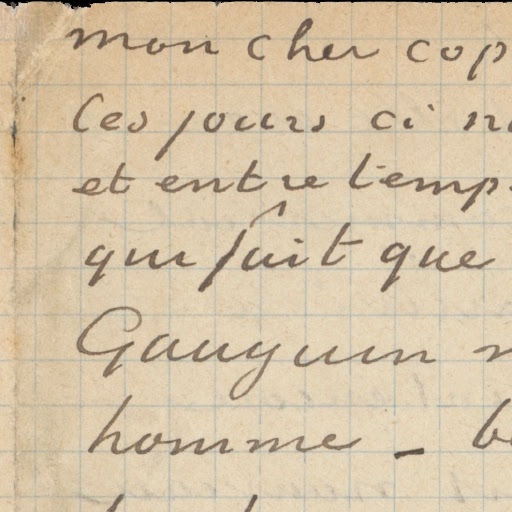 mon cher cop
Ces jours ci n
et entre temps
qui fait que
Gauguin n
homme – b